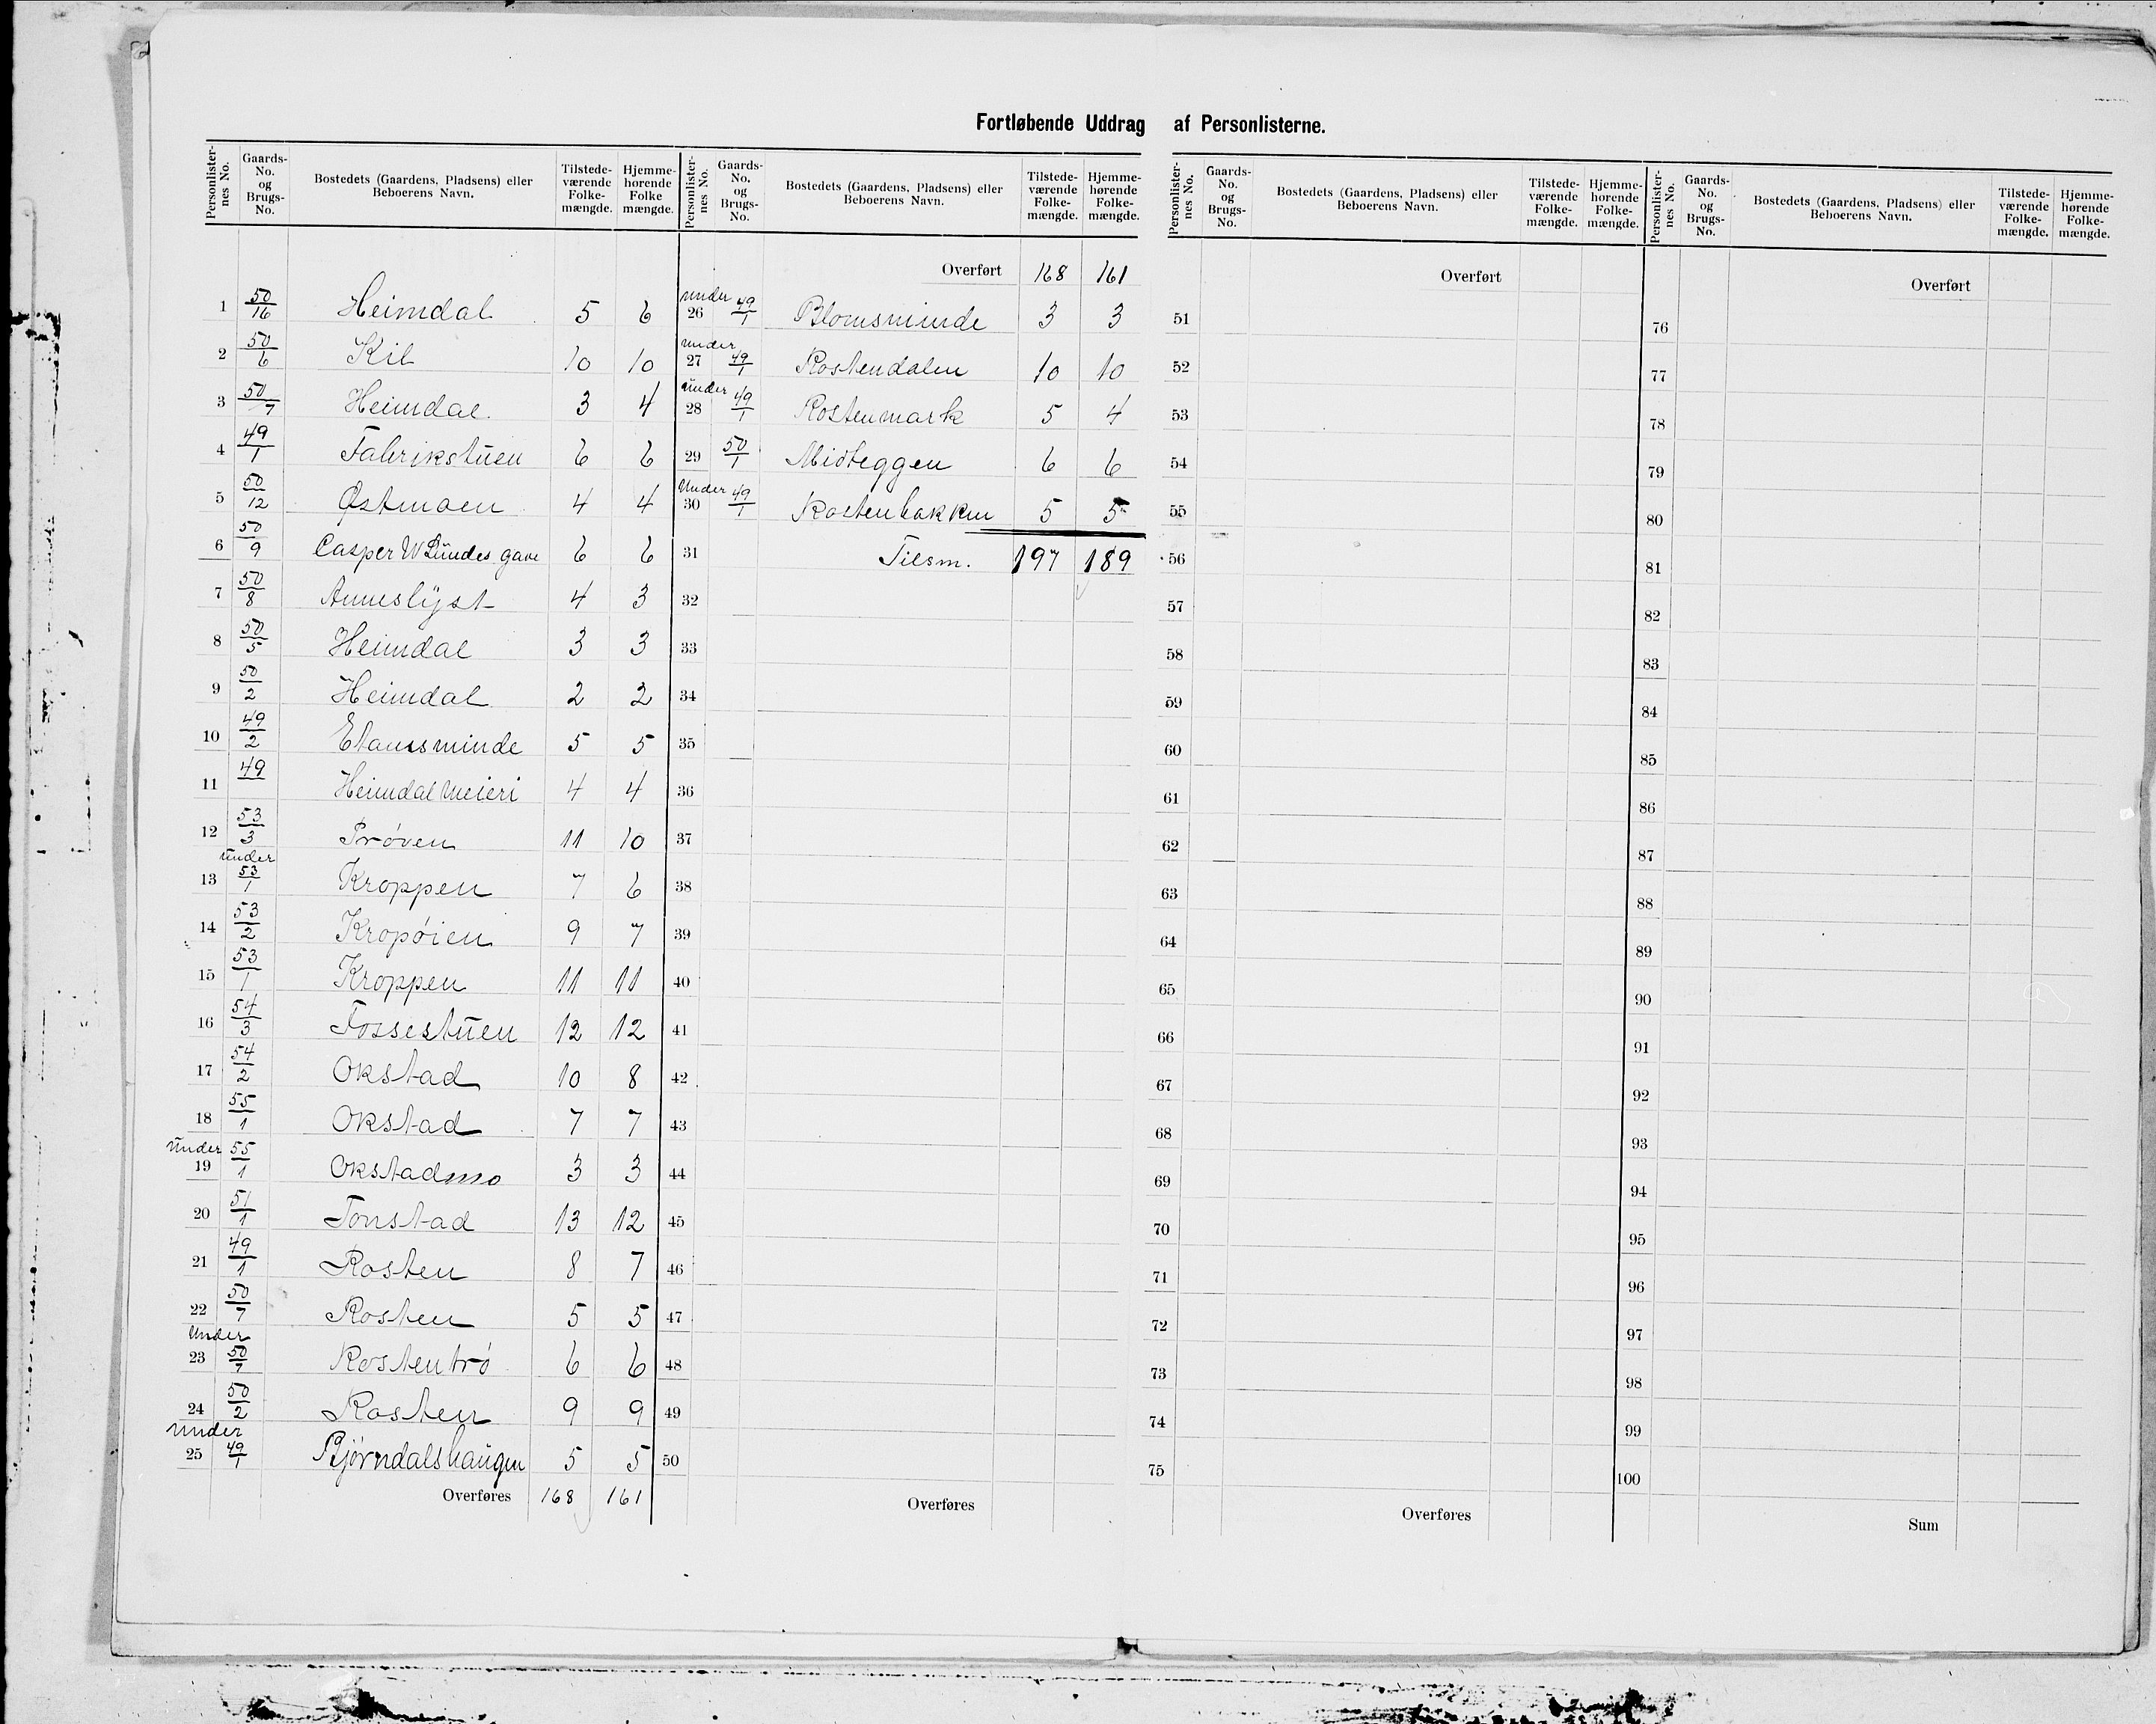 Fortløbende Uddrag af Personlisterne.
Personlisternes No. | Gaards-No. og Brugs-No. | Bostedets (Gaardens, Pladsens) eller Beboerens Navn. | Tilstedeværende Folkemængde. | Hjemmehørende Folkemængde.
1 50/16 Heimdal 5 6
2 50/6 Kil 10 10
3 50/7 Heimdal 3 4
4 49/1 Fabrikstuen 6 6
5 50/12 Østmoen 4 4
6 50/9 Casper W Lundes gave 6 6
7 50/8 Anneslyst 4 3
8 50/5 Heimdal 3 3
9 50/2 Heimdal 2 2
10 49/2 Etaussminde 5 5
11 49 Heimdal Meieri 4 4
12 53/3 Prøven 11 10
13 under 53/1 Kroppen 7 6
14 53/2 Kropøien 9 7
15 53/1 Kroppen 11 11
16 54/3 Fossestuen 12 12
17 54/2 Okstad 10 8
18 55/1 Okstad 7 7
19 under 55/1 Okstadmo 3 3
20 51/1 Tonstad 13 12
21 49/1 Rosten 8 7
22 50/7 Rosten 5 5
23 Under 50/7 Rostentrø 6 6
24 50/2 Rosten 9 9
25 Under 49/1 Bjørndalshaugen 5 5
Overføres 168 161
Personlisternes No. | Gaards-No. og Brugs-No. | Bostedets (Gaardens, Pladsens) eller Beboerens Navn. | Tilstedeværende Folkemængde. | Hjemmehørende Folkemængde.
Overført 168 161
26 under 49/1 Blomsminde 3 3
27 under 49/1 Rostendalen 10 10
28 under 49/1 Rostenmark 5 4
29 50/1 Midteggen 6 6
30 Under 49/1 Rostenbakken 5 5
31 Tilsm. 197 189
32
33
34
35
36
37
38
39
40
41
42
43
44
45
46
47
48
49
50
Overføres
Personlisternes No. | Gaards-No. og Brugs-No. | Bostedets (Gaardens, Pladsens) eller Beboerens Navn. | Tilstedeværende Folkemængde. | Hjemmehørende Folkemængde.
Overført
51
52
53
54
55
56
57
58
59
60
61
62
63
64
65
66
67
68
69
70
71
72
73
74
75
Overføres
Personlisternes No. | Gaards-No. og Brugs-No. | Bostedets (Gaardens, Pladsens) eller Beboerens Navn. | Tilstedeværende Folkemængde. | Hjemmehørende Folkemængde.
Overført
76
77
78
79
80
81
82
83
84
85
86
87
88
89
90
91
92
93
94
95
96
97
98
99
100
Sum